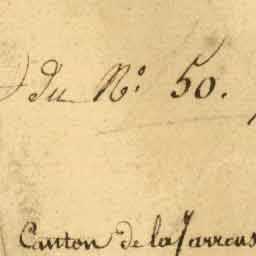 du N.º 50.
Canton de la Jarrous